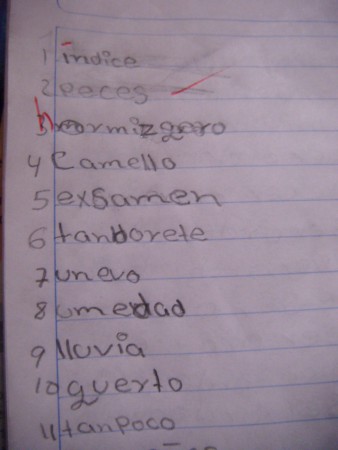 1 índice
2 peces
hormizgero
4 Camello
5 exsamen
6 tanborete
7 unevo
8 umedad
9 lluvia
10 guerto
11 tanpoco